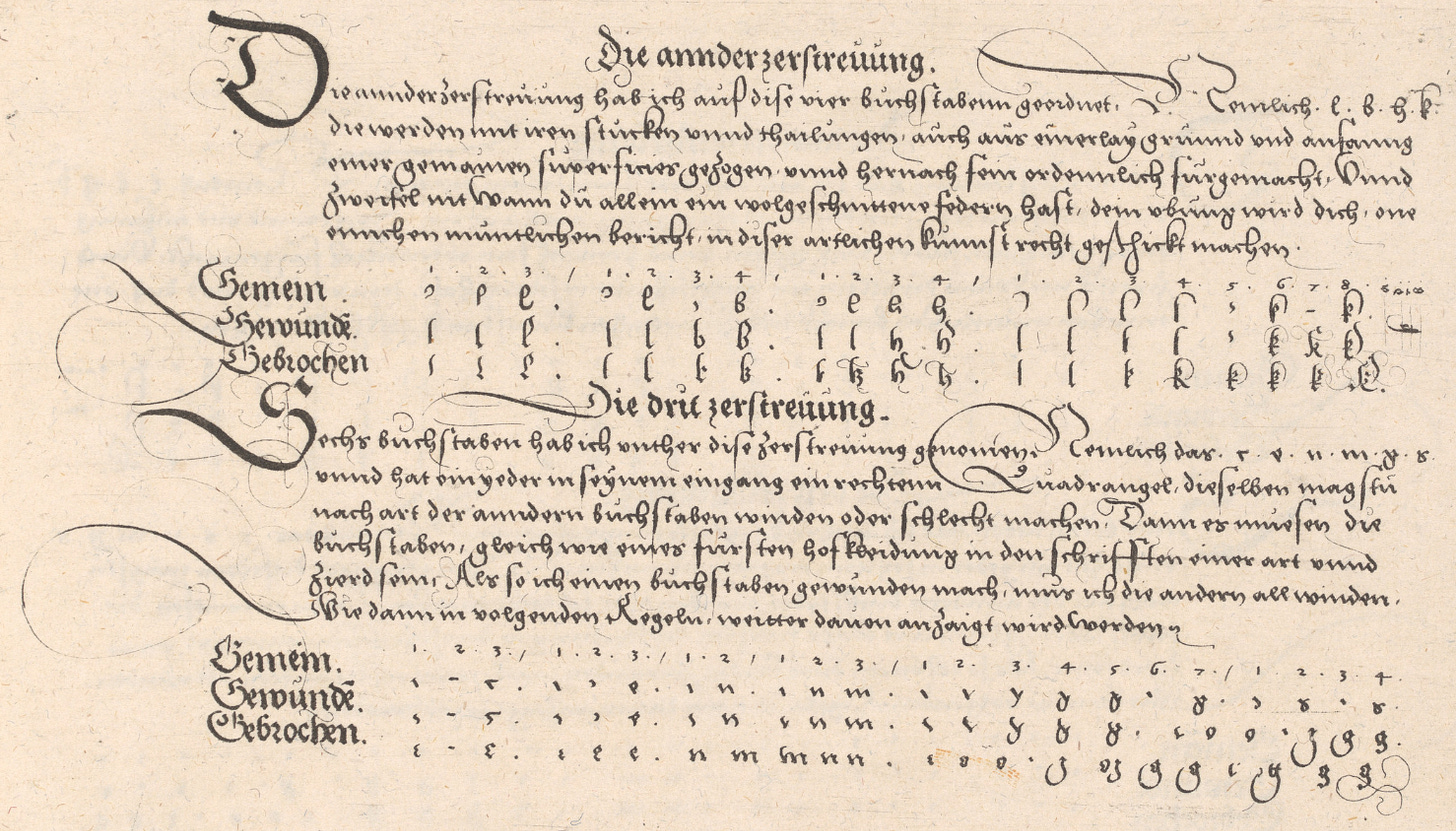 Die annder zerstreüung.
Die annder zerstreüung hab ich auf dise vier buchstabenn geordnet, Nemlich. l. b. h. k.
die werden mit iren stucken vnnd thailungen, auch aus einerlay grunnd vnd anfanng
einer gemainen superficies gezogen, vnnd hernach fein ordennlich fürgemacht, Vnnd
Zweifel nit Wann du allein ein wolgeschnittene federn hast, dein vbung wird dich, one
ennichen muntlichen bericht, in diser artlichen kunnst recht geschickt machen.
1. 2. 3. / 1. 2. 3. 4 / 1. 2. 3. 4 / 1. 2. 3. 4. 5. 6. 7. 8.
Gemein.
Gewundē.
Gebrochen
Die drit zerstreüung.
Sechs buchstaben hab ich vnther dise zerstreuung genomen, Nemlich das. c. e. n. m. g. s.
vnnd hat ein yeder in seynem eingang ein rechtenn Quadrangel, dieselben magstu
nach art der anndern buchstaben winden oder schlecht machen, Dann es muesen die
buchstaben, gleich wie eines fursten hofkleidung in den schrifften einer art vnnd
Zierd sein, Als so ich einen buchstaben gewunden mach, mus ich die andern all winden,
Wie dann in volgenden Regeln, weitter dauon anzaigt wird werden
1. 2. 3. / 1. 2. 3. / 1. 2. / 1. 2. 3. / 1. 2. 3. 4. 5. 6. 7. / 1. 2. 3. 4.
Gemein.
Gewundē.
Gebrochen.